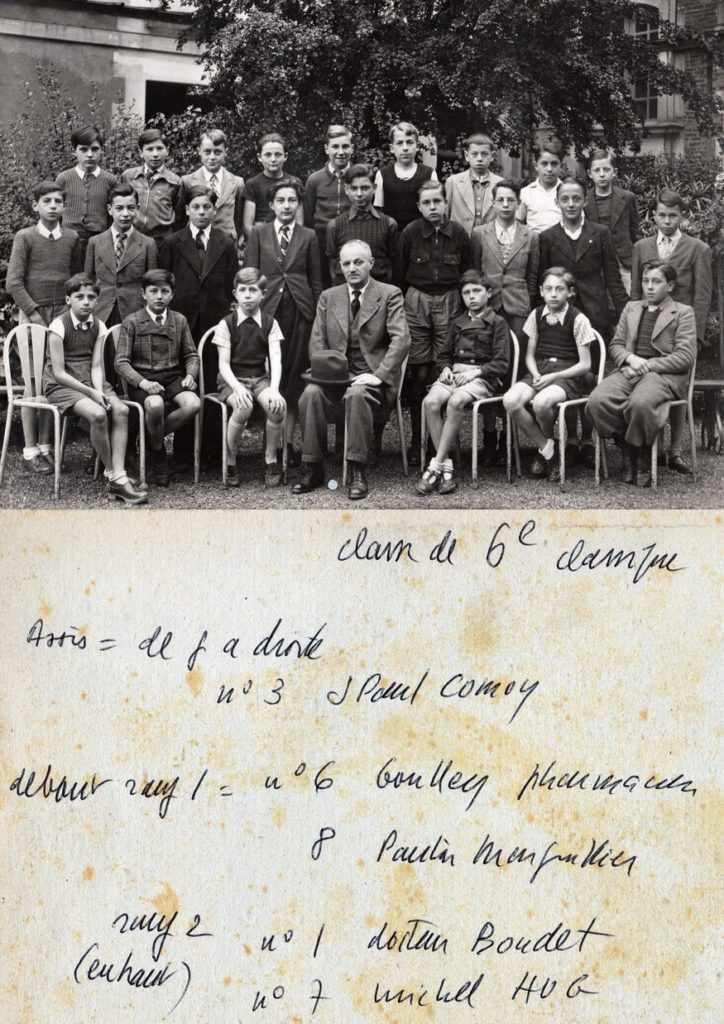 classe de 6e classique
Assis = de g a droite
n° 3 J Paul Comoy
debout rang 1 = n° 6 Boulley pharmacien
8 Paulin
rang 2 n° 1 docteur Boudet
(en haut) n° 7 michel HUG